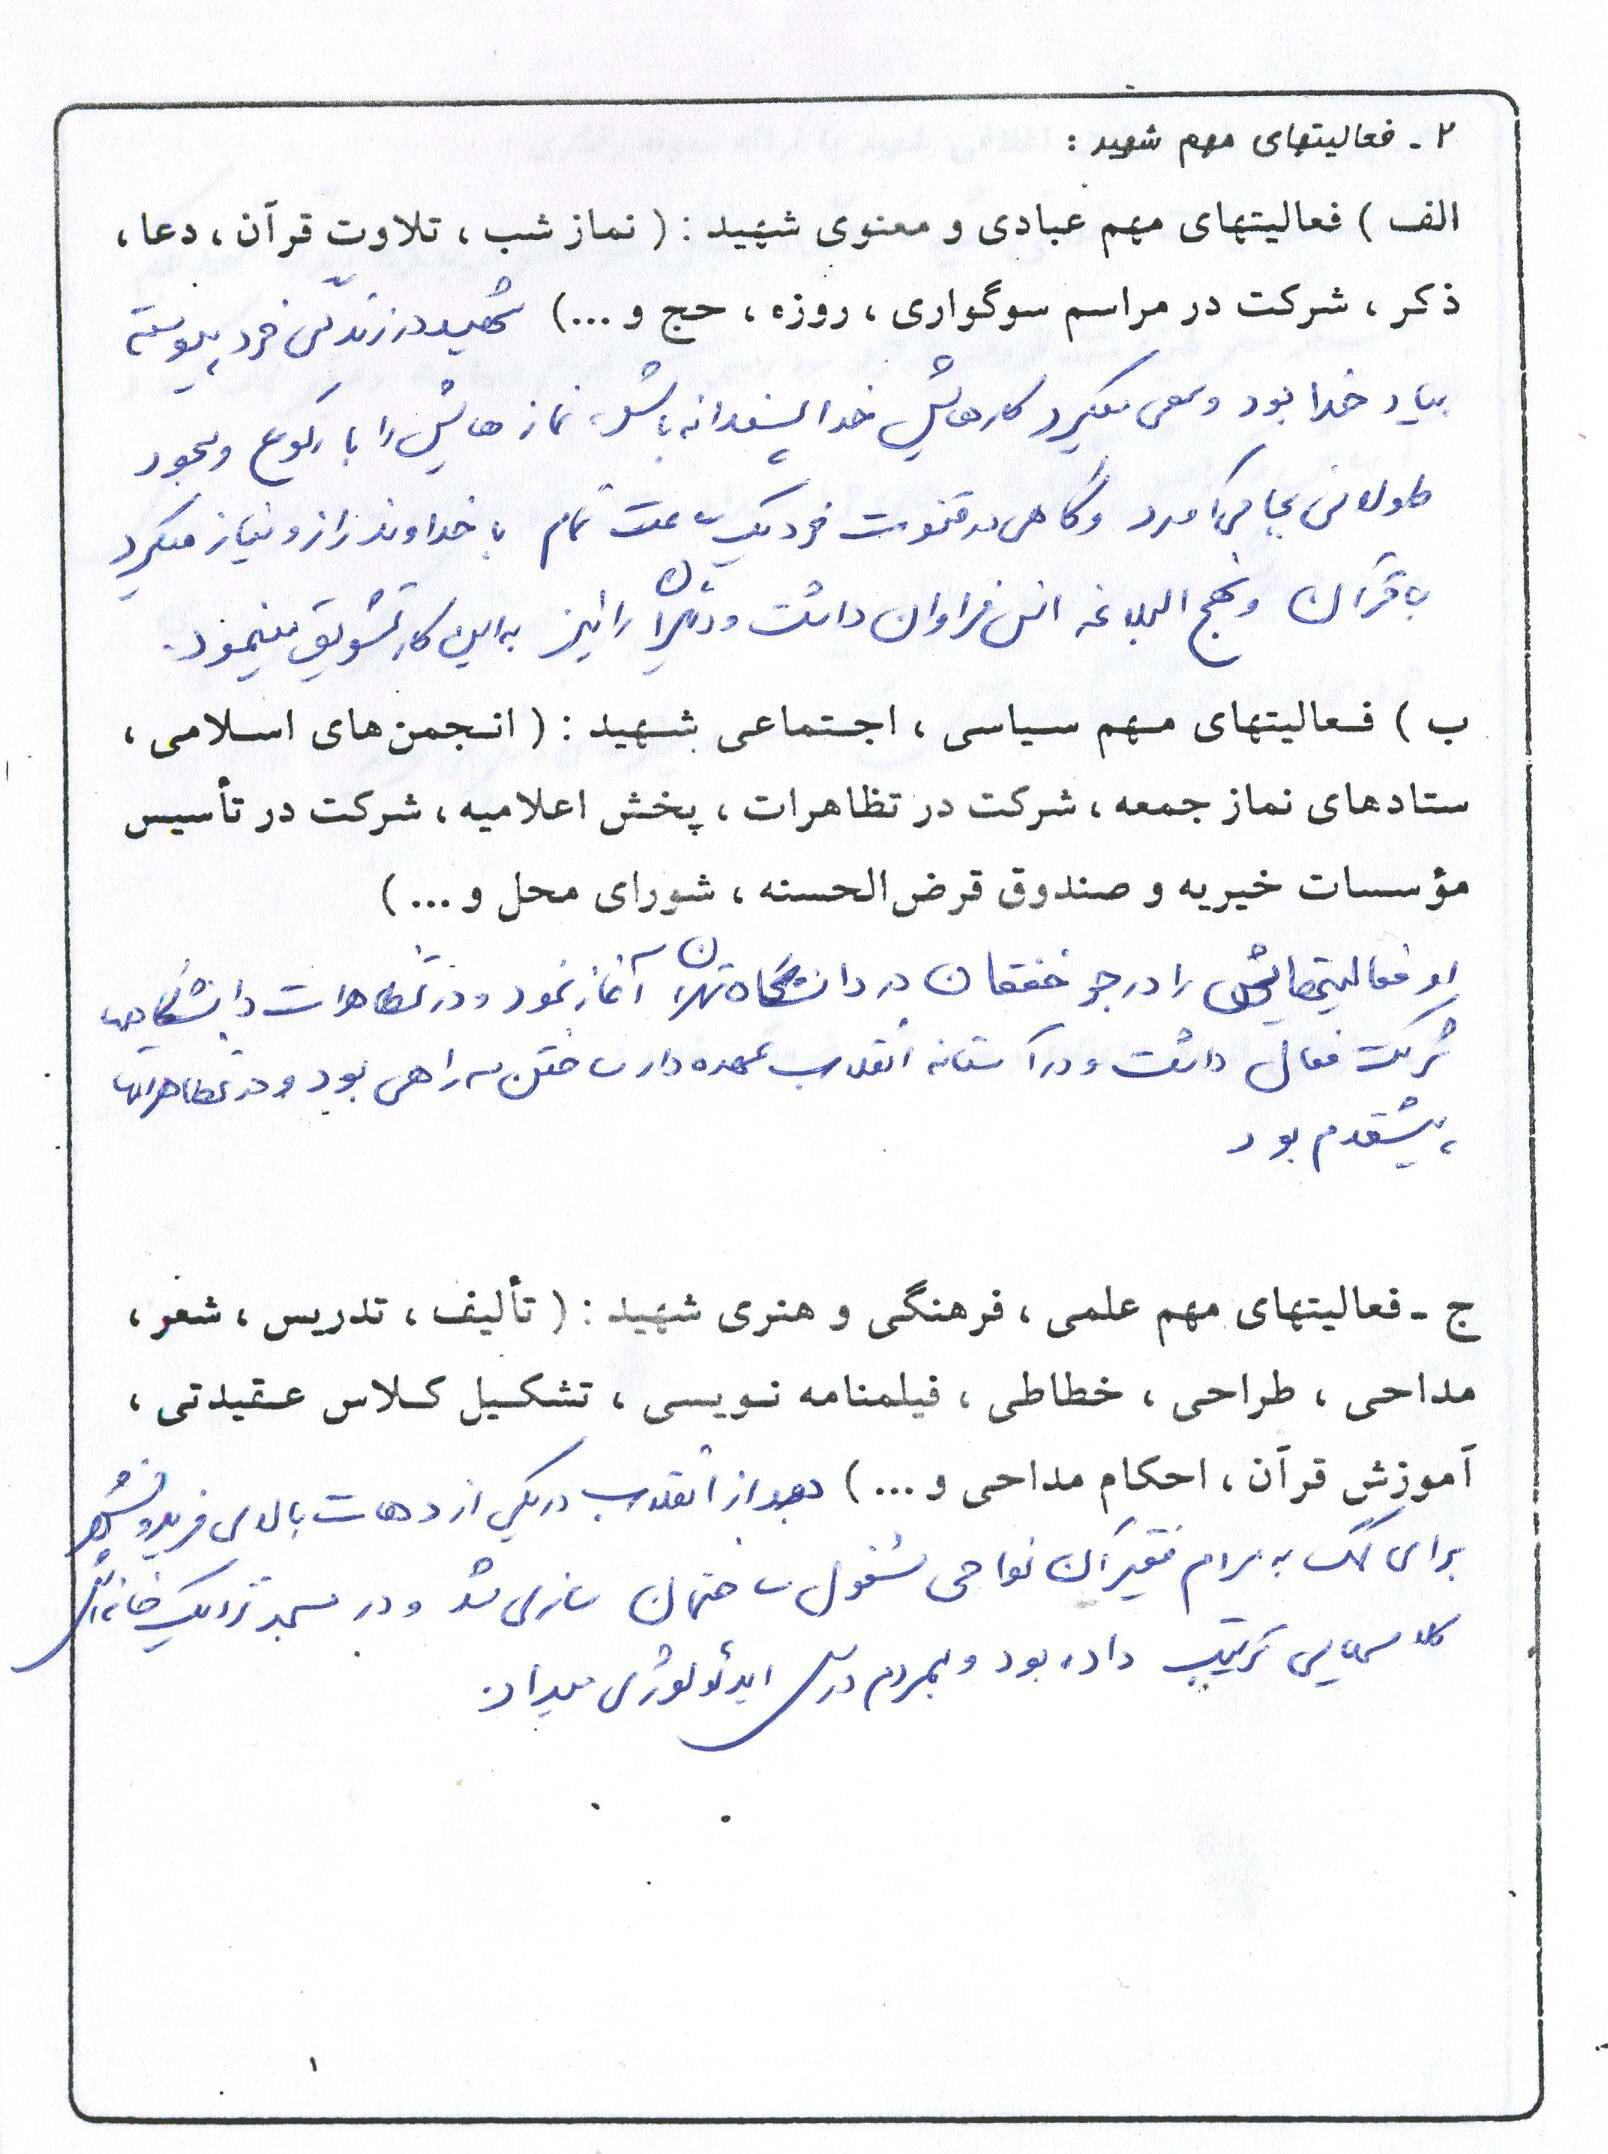 ۲ - فعالیتهای مهم شهید :
الف ) فعالیتهای مهم عبادی و معنوی شهید : ( نماز شب ، تلاوت قرآن ، دعا ،
ذکر ، شرکت در مراسم سوگواری ، روزه ، حج و ...) شهید در زندگی خود پیوسته
بیاد خدا بود و سعی میکرد کارهایش خدا پسندانه باشد نماز هایش را با رکوع و سجود
طولانی بجا می آورد و گاهی در قنوت خود یک ساعت تمام با خداوند راز و نیاز میکرد
با قرآن و نهج البلاغه انس فراوان داشت و دیگران را نیز به این کار تشویق مینمود.
ب ) فعالیتهای مهم سیاسی ، اجتماعی شهید : ( انجمن‌های اسلامی ،
ستادهای نماز جمعه ، شرکت در تظاهرات ، پخش اعلامیه ، شرکت در تأسیس
مؤسسات خیریه و صندوق قرض‌الحسنه ، شورای محل و ... )
او فعالیتهایش را در جو خفقان در دانشگاه تهران آغاز نمود و در تظاهرات دانشگاه
شرکت فعال داشت و در آستانه انقلاب عهده دار ساختن سه راهی بود و در تظاهرات
پیشقدم بود
ج - فعالیتهای مهم علمی ، فرهنگی و هنری شهید : ( تألیف ، تدریس ، شعر ،
مداحی ، طراحی ، خطاطی ، فیلمنامه نویسی ، تشکیل کلاس عقیدتی ،
آموزش قرآن ، احکام مداحی و ... ) بعد از انقلاب در یکی از دهات بالای فریدونشهر
برای کمک به مردم فقیر آن نواحی مشغول ساختمان سازی شد و در مسجد نزدیک خانه اش
کلاسهایی ترتیب داده بود و بمردم درس ایدئولوژی میداد.
۱